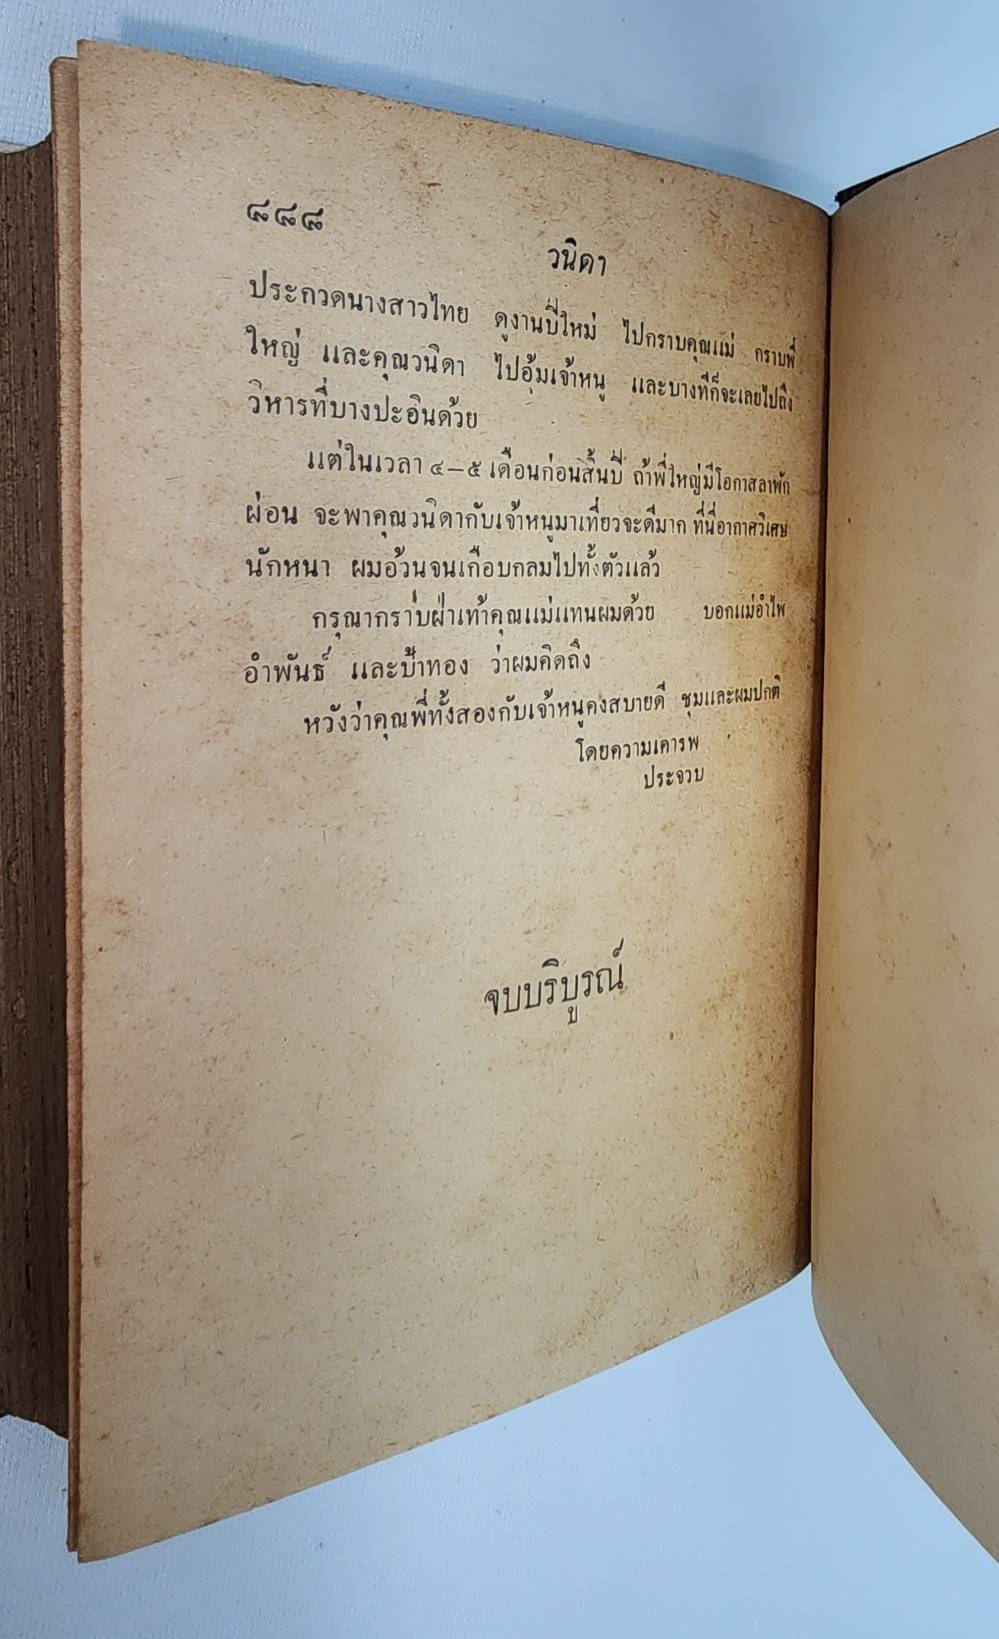 ๘๘๘
วนิดา
ประกวดนางสาวไทย ดูงานปีใหม่ ไปกราบคุณแม่ กราบพี่
ใหญ่ และคุณวนิดา ไปอุ้มเจ้าหนู และบางทีก็จะเลยไปถึง
วิหารที่บางปะอินด้วย
แต่ในเวลา ๔—๕ เดือนก่อนสิ้นปี ถ้าพี่ใหญ่มีโอกาสลาพัก
ผ่อน จะพาคุณวนิดากับเจ้าหนูมาเที่ยวจะดีมาก ที่นี่อากาศวิเศษ
นักหนา ผมอ้วนจนเกือบกลมไปทั้งตัวแล้ว
กรุณากราบฝ่าเท้าคุณแม่แทนผมด้วย บอกแม่อำไพ
อำพันธ์ และป้าทอง ว่าผมคิดถึง
หวังว่าคุณพี่ทั้งสองกับเจ้าหนูคงสบายดี ชุมและผมปกติ
โดยความเคารพ
ประจวบ
จบบริบูรณ์